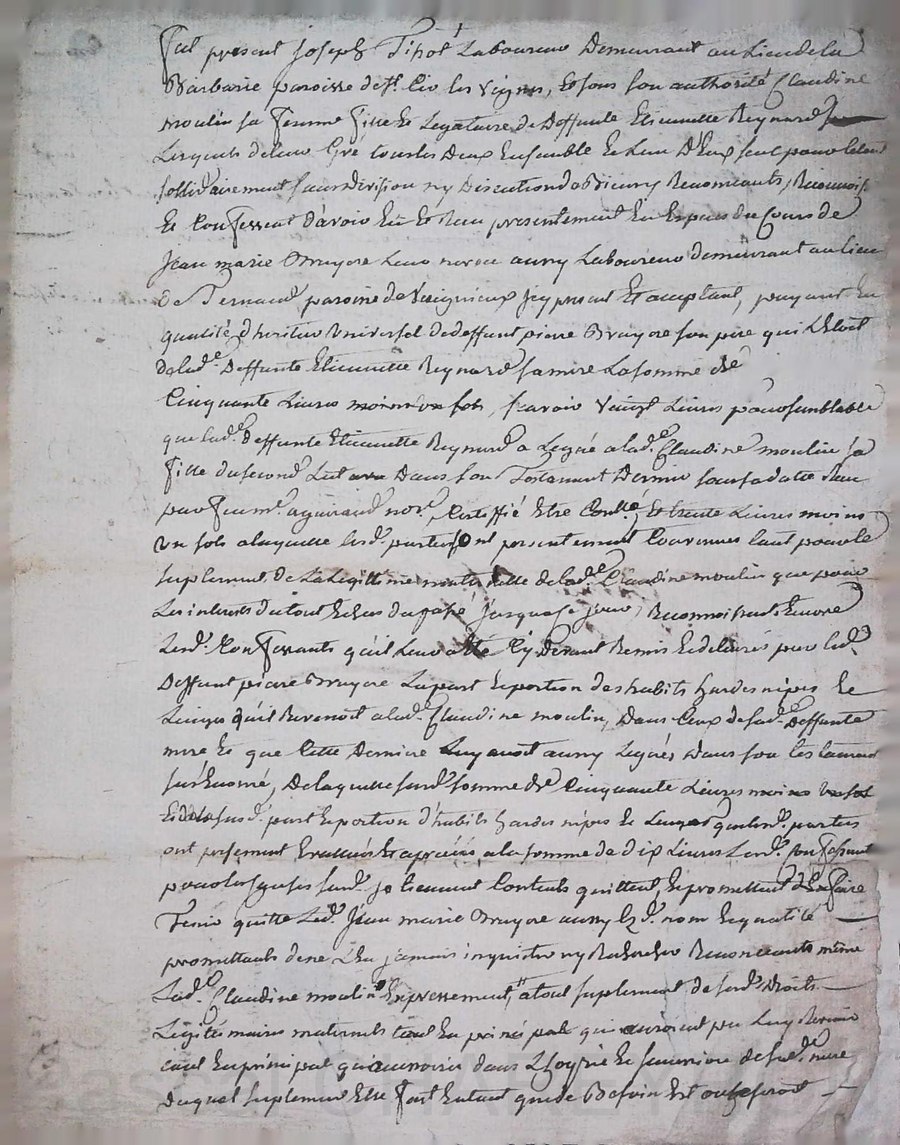 Fut present Joseph Tihot Laboureur Demeurant au Lieu de la
Barbarie paroisse de st. Cir les vignes, Et sous son authorité Claudine
moulin sa femme fille Et Legataire de Deffunte Etiennette Reynard
Lesquels de leur Gré tous les Deux Ensemble Et L'un D'Eux seul pour le tout
sollidairement sans division ny Discution do Renonceants, Reconnois
Et Confessent d'avoir Eu Et Reçu presentement En Especes du Cours de
Jean marie Bruyere Leur neveu aussy Laboureur demeurant au lieu
de paroisse de Valeignieux Icy present Et acceptant, payant En
qualité d'heritier Universel de deffunt pierre Bruyere son pere qui L'Etoit
de lad.e Deffunte Etiennette Reynard sa mere La somme de
Cinquante Livres moins un sols, sçavoir Vaingt Livres pour semblable
que lad.e deffunte Etiennette Reynard a Legué a lad.e Claudine moulin sa
fille du second Lict Dans son Testament Dernier sous sa datte Reçu
par not.e Certiffié Etre Conllé, Et trente Livres moins
un sols a laquelle lesd. parties sont presentement Convenues tant pour le
suplement de La Legittime maternelle de lad.e Claudine moulin que pour
Les interets du tout Echus du passé Jusqu'a ce jour, Reconnoissent Encore
Lesd. Confessants qu'il Leur a Eté Cy Devant Remis Et delivrés par led.
Deffunt pierre Bruyere La part Et portion des habits hardes nipes Et
Linges qu'il Revenoit a lad.e Claudine moulin, Dans Ceux de sad.e Deffunte
mere Et que Cette Derniere Luy avoit aussy Legués Dans son testament
sus Enoncé, De laquelle susd. somme de Cinquante Livres moins un sol
Et de susd. part Et portion d'habits hardes nipes Et Linges que lesd. parties
ont presement Evalués Et apreciés a la somme de dix Livres Lesd. Confessant
pour lesquelles susd. se tiennent Contents quittent, Et promettent d'En faire
Tenir quitte Led. Jean marie Bruyere aussy nom Et qualité
promettants de ne L'En jamais inquieter ny Rechercher Renonceants même
Lad.e Claudine moulin Expressement, a tout suplement de sesd. Droits
Legitimaires maternels tant En principal qui auroient pu Luy Revenir
tant En principal qu'accessoire dans L'hoyrie Et succession de sad.e mere
Duquel suplement Elle fait Entant que de Besoin Est ou seroit